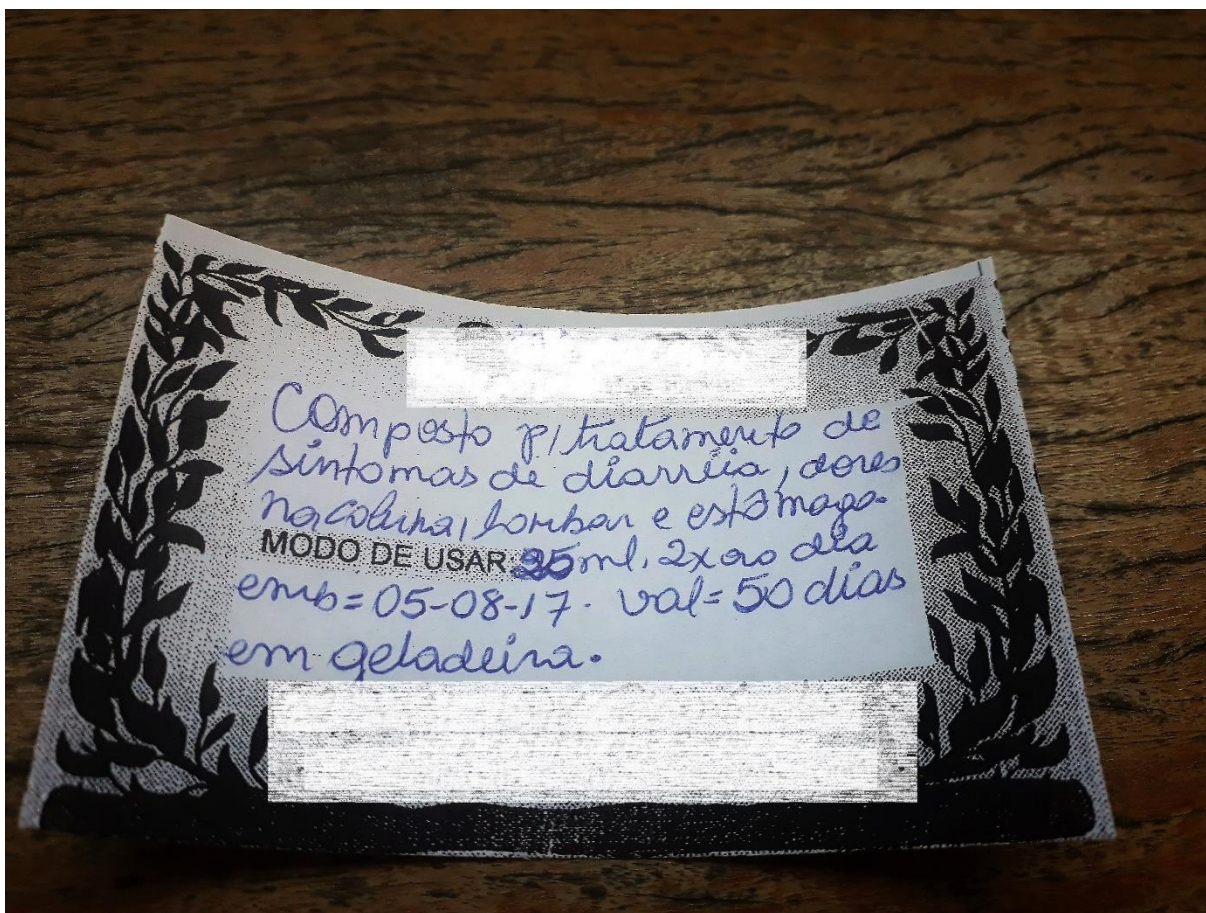 Composto p/ tratamento de
sintomas de diarréia, dores
na coluna, lombar e estômago.
MODO DE USAR: 25ml. 2x ao dia
emb=05-08-17. val=50 dias
em geladeira.